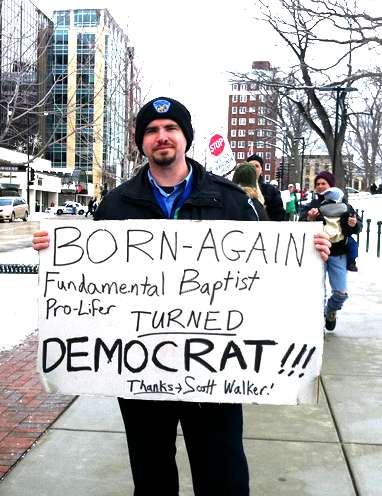 STOP
BORN-AGAIN
Fundamental Baptist
Pro-Lifer
TURNED
DEMOCRAT!!!
Thanks→Scott Walker!